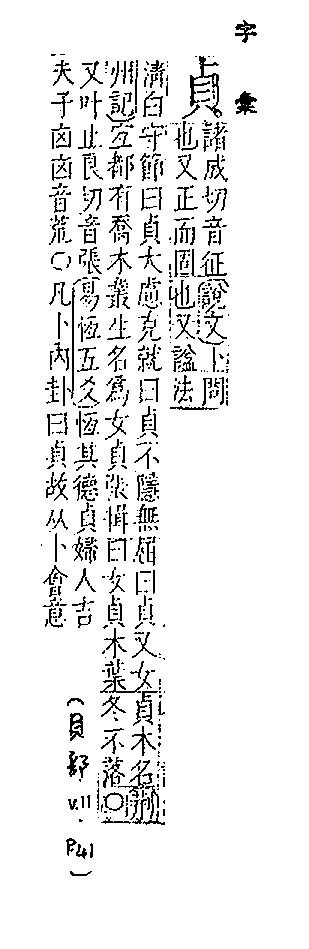 字彙
貞 諸成切音征說文卜問
也又正而固也又謚法
清白守節曰貞大慮克就曰貞不隱無屈曰貞又女貞木名荆
州記宜都有喬木叢生名爲女貞張揖曰女貞木葉冬不落〇
又叶止良切音張易恆五爻恆其德貞婦人吉
夫子凶凶音荒〇凡卜內卦曰貞故从卜會意
(貝部 V.11. P41)